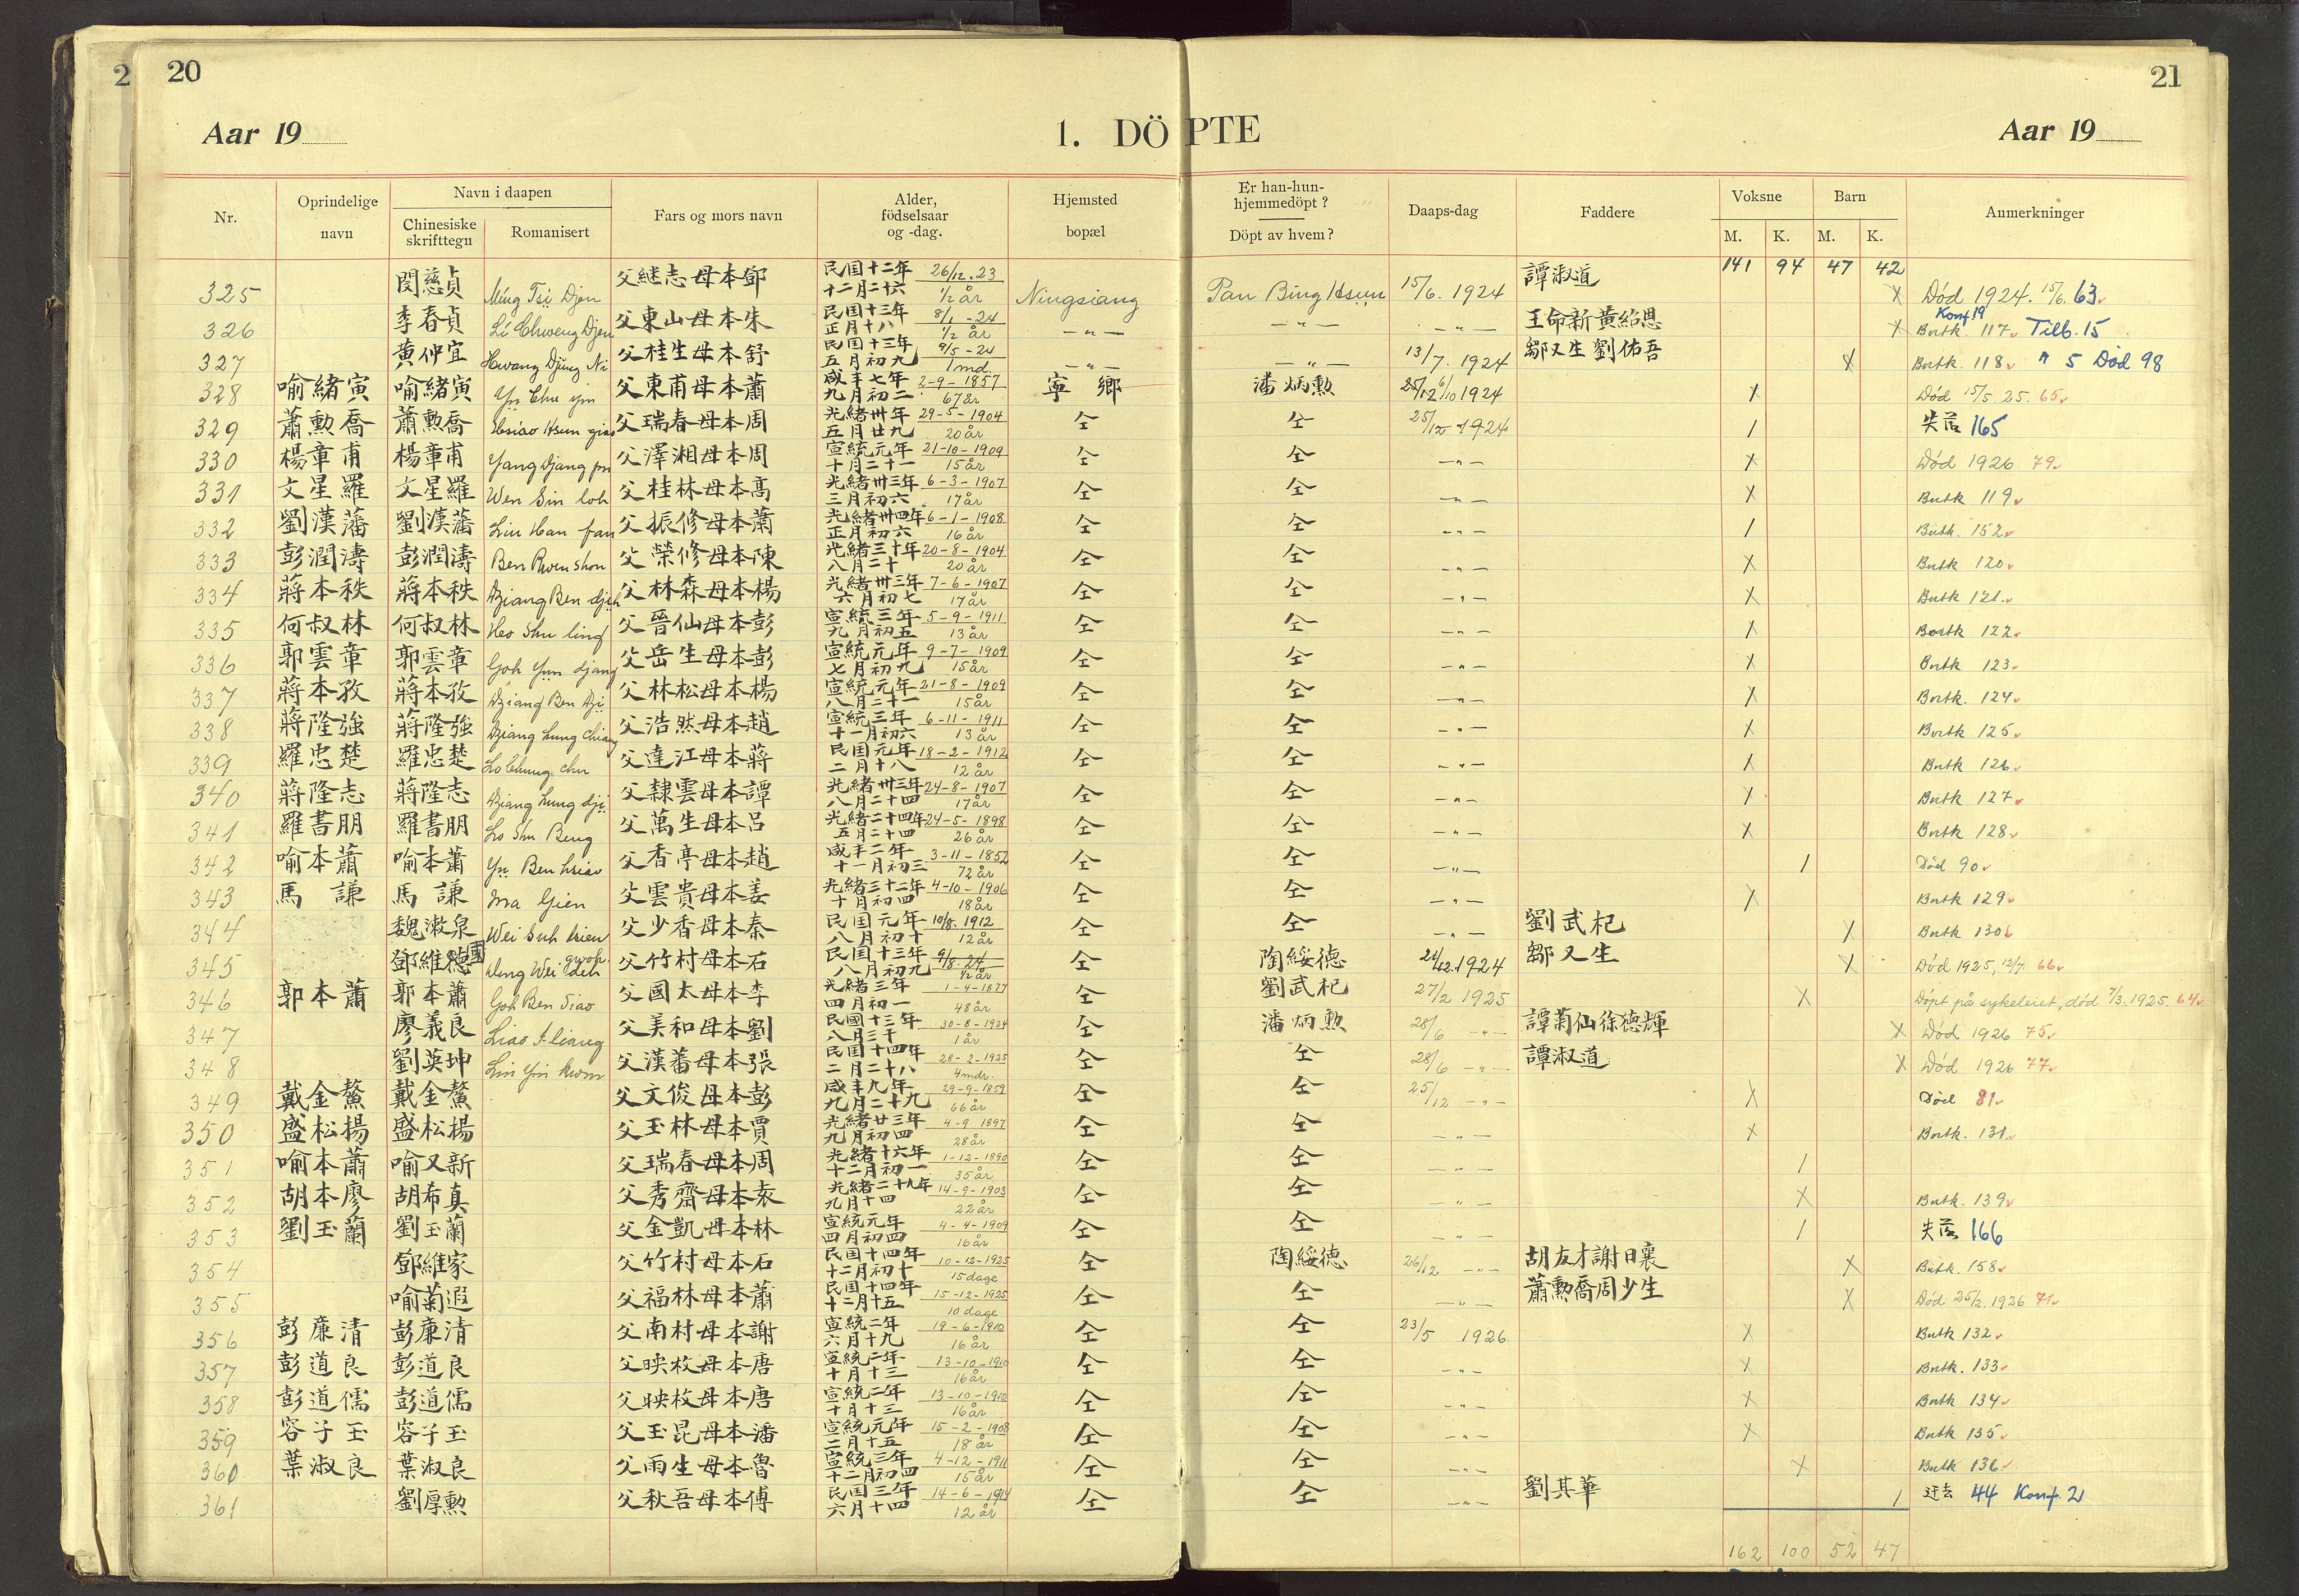 2 20
21
Aar 19
1. DÖPTE
Aar 19
Nr. Oprindelige navn Navn i daapen Chinesiske skrifttegn Romanisert Fars og mors navn Alder, födselsaar og -dag. Hjemsted bopæl Er han-hun- hjemmedöpt? Döpt av hvem? Daaps-dag Faddere Voksne M. K. Barn M. K. Anmerkninger
141 94 47 42
325 閔慈貞 Ming Tsi Djen 父継志母本鄧 民国十二年十二月二十六 26/12.23 1/2 år Ningsiang Pan Bing Hsun 15/6. 1924 譚淑道 X Död 1924. 15/6. 63
326 李春貞 Li Chweng Djen 父東山母本朱 民国十三年正月十八 8/1-24 1/2 år —„— —„— —„— 王命新黄紹恩 X Konf 19 Butk. 117 Tilb. 15
327 黄仲宜 Hwang Djung Ni 父桂生母本舒 民国十三年五月初九 9/5-24 1 md. —„— —„— 13/7. 1924 鄒又生劉佑吾 X Butk. 118 " 5 Död 98
328 喻緒寅 喻緒寅 Yu Chu yin 父東甫母本蕭 咸丰七年九月初二 2-9-1857 67 år 寧鄉 潘炳勲 1924 X Död 15/5. 25. 65
329 蕭勲喬 蕭勲喬 Hsiao Hsun giao 父瑞春母本周 光緒卅年五月廿九 29-5-1904 20 år 仝 仝 25/12 1924 / 失落 165
330 楊章甫 楊章甫 Yang Djang pu 父澤湘母本周 宣統元年十月二十一 21-10-1909 15 år 仝 仝 —„— X Död 1926 79
331 文星羅 文星羅 Wen Sin loh 父桂林母本髙 光緒卅三年三月初六 6-3-1907 17 år 仝 仝 —„— X Butk 119
332 劉漢藩 劉漢藩 Liu Han fan 父振修母本蕭 光緒卅四年正月初六 6-1-1908 16 år 仝 仝 —„— / Butk. 152
333 彭潤濤 彭潤濤 Ben Rwen shou 父榮修母本陳 光緒三十年八月二十 20-8-1904 20 år 仝 仝 —„— X Butk 120
334 蔣本秩 蔣本秩 Dziang Ben djeh 父林森母本楊 光緒卅三年六月初七 7-6-1907 17 år 仝 仝 —„— X Butk 121
335 何叔林 何叔林 Heo Shu ling 父晉仙母本彭 宣統三年九月初五 5-9-1911 13 år 仝 仝 —„— X Bortk 122
336 郭雲章 郭雲章 Goh Yun djang 父岳生母本彭 宣統元年七月初九 9-7-1909 15 år 仝 仝 —„— X Butk 123
337 蔣本孜 蔣本孜 Dziang Ben Dzi 父林松母本楊 宣統元年八月二十一 21-8-1909 15 år 仝 仝 —„— X Bortk. 124
338 蔣隆強 蔣隆強 Dziang Lung Chiang 父浩然母本趙 宣統三年十一月初六 6-11-1911 13 år 仝 仝 —„— X Bortk 125
339 羅忠楚 羅忠楚 Lo Chung chu 父達江母本蔣 民国元年二月十八 18-2-1912 12 år 仝 仝 —„— X Butk 126
340 蔣隆志 蔣隆志 Dziang Lung dji 父隸雲母本譚 光緒卅三年八月二十四 24-8-1907 17 år 仝 仝 —„— X Butk 127
341 羅書朋 羅書朋 Lo Shu Beng 父萬生母本呂 光緒二十四年五月二十四 24-5-1898 26 år 仝 仝 —„— X Butk 128
342 喻本蕭 喻本蕭 Yu Ben hsiao 父香亭母本趙 咸丰二年十一月初三 3-11-1852 72 år 仝 仝 —„— / Död 90
343 馬謙 馬謙 Ma Gien 父雲貴母本姜 光緒三十二年十月初四 4-10-1906 18 år 仝 仝 —„— X Butk 129
344 魏漱泉 Wei Suh tsien 父少香母本秦 民国元年八月初十 10/8. 1912 12 år 仝 仝 —„— 劉武杞 X Butk 130
345 鄧維德國 Deng Wei deh gwoh 父竹村母本石 民国十三年八月初九 9/8. 24 1/2 år 仝 陶綏德 24/12. 1924 鄒又生 X Död 1925, 12/7. 66
346 郭本蕭 郭本蕭 Goh Ben Siao 父國太母本李 光緒三年四月初一 1-4-1877 48 år 仝 劉武杞 27/2 1925 X Döpt på sykeleiet, död 7/3. 1925. 64
347 廖義良 Liao I-liang 父美和母本劉 民國十三年八月三十 30-8-1924 1 år 仝 潘炳勲 28/6 —„— 譚菊仙徐德輝 X Död 1926 75
348 劉英坤 Liu Yin kwen 父漢蕃母本張 民国十四年二月二十八 28-2-1925 4 mdr. 仝 仝 28/6 —„— 譚淑道 X Död 1926 77
349 戴金鰲 戴金鰲 父文俊母本彭 咸丰九年九月二十九 29-9-1859 66 år 仝 仝 25/12 —„— X Död 81
350 盛松楊 盛松楊 父玉林母本賈 光緒廿三年九月初四 4-9 1897 28 år 仝 仝 —„— X Bortk. 131
351 喻本蕭 喻又新 父瑞春母本周 光緒十六年十二月初一 1-12-1890 35 år 仝 仝 —„— /
352 胡本廖 胡希真 父秀齋母本袁 光緒二十九年九月十四 14-9-1903 22 år 仝 仝 —„— X Butk. 139
353 劉玉蘭 劉玉蘭 父金凱母本林 宣統元年四月初四 4-4-1909 16 år 仝 仝 —„— / 失落 166
354 鄧維家 父竹村母本石 民国十四年十二月初十 10-12-1925 15 dage 仝 陶綏德 26/12 —„— 胡友才謝日襄 X Butk. 158
355 喻菊遐 父福林母本蕭 民国十四年十二月十五 15-12-1925 10 dage 仝 仝 —„— 蕭勲喬周少生 X Död 25/2. 1926 71
356 彭廉清 彭廉清 父南村母本謝 宣統二年六月十九 19-6-1910 16 år 仝 仝 23/5 1926 X Butk 132
357 彭道良 彭道良 父映枚母本唐 宣統二年十月十三 13-10-1910 16 år 仝 仝 —„— X Butk. 133
358 彭道儒 彭道儒 父映枚母本唐 宣統二年十月十三 13-10-1910 16 år 仝 仝 —„— X Butk 134
359 容子玉 容子玉 父玉昆母本潘 宣統元年二月十五 15-2-1908 18 år 仝 仝 —„— X Butk 135
360 葉淑良 葉淑良 父雨生母本魯 宣統三年十二月初四 4-12-1911 15 år 仝 仝 —„— X Butk 136
361 劉厚勲 父秋吾母本傅 民国三年六月十四 14-6-1914 12 år 仝 仝 —„— 劉其華 / 迁去 44 Konf. 2
162 100 52 47